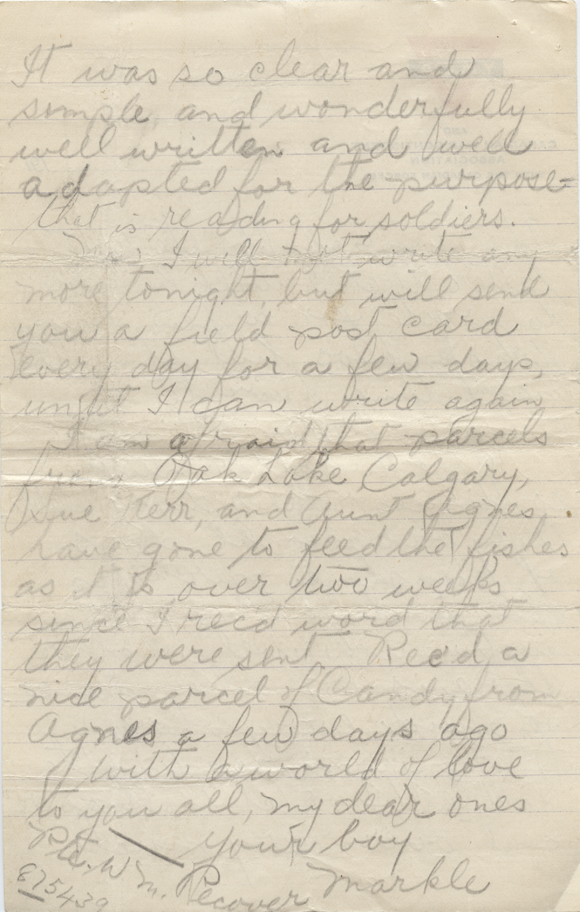 It was so clear and
simple and wonderfully
well written and well
adapted for the purpose-
that is reading for soldiers.
I will not write any
more tonight, but will send
you a field post card
every day for a few days,
until I can write again
I am afraid that parcels
from Oak Lake, Calgary,
Kerr, and Aunt Agnes
have gone to feed the fishes
as it is over two weeks
since I recd word that
they were sent Recd a
nice parcel of Candy from
Agnes a few days ago
With a world of love
to you all, my dear ones
Your boy
Pte. Wm. Recover Markle
875439